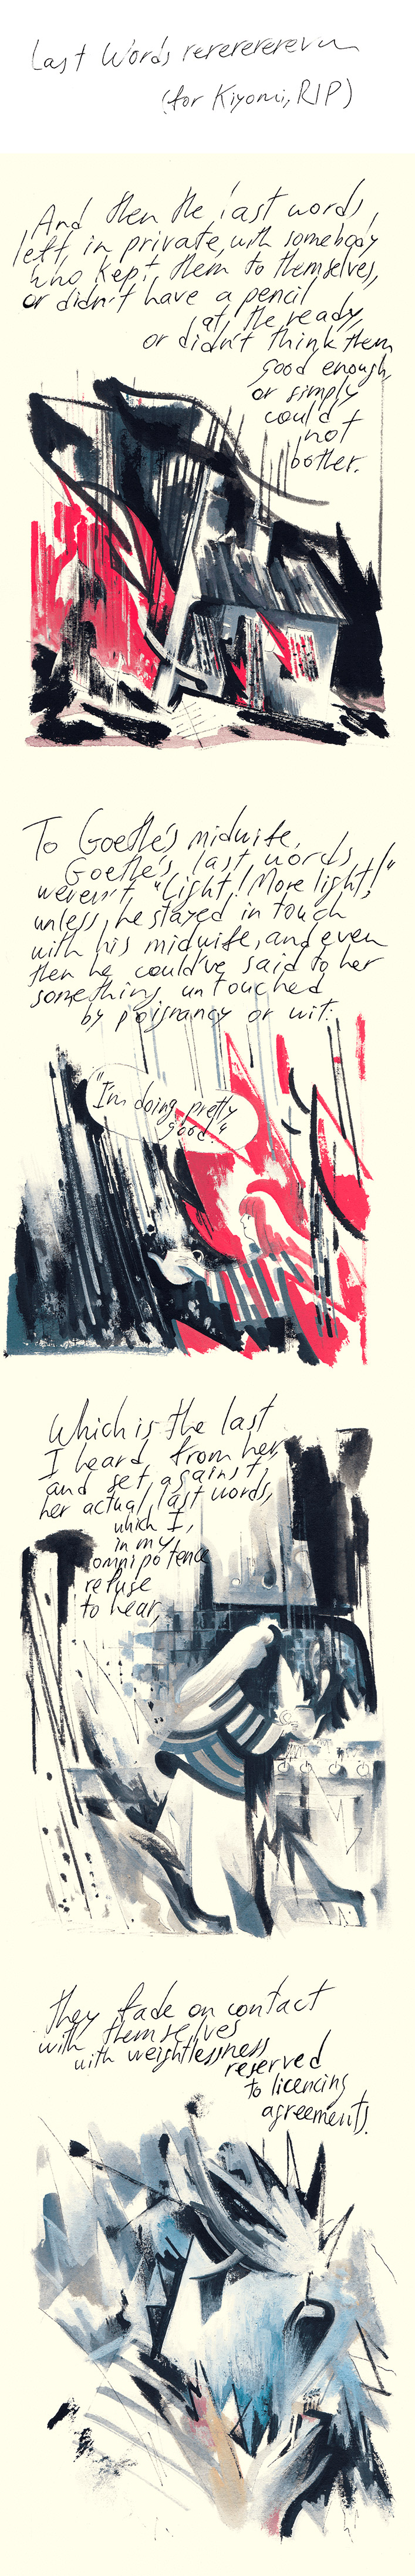 Last Words rerererererun
(for Kiyomi, RIP)
And then the last words,
left, in private, with somebody
who kept them to themselves,
or didn't have a pencil
at the ready,
or didn't think them
good enough,
or simply
could
not
bother.
To Goethe's midwife,
Goethe's last words
weren't "Light! More light!"
unless he stayed in touch
with his midwife, and even
then he could've said to her
something untouched
by poignancy or wit:
"I'm doing pretty
good."
Which is the last
I heard from her,
and set against
her actual last words,
which I,
in my
omnipotence
refuse
to hear,
they fade on contact
with themselves
with weightlessness
reserved
to licencing
agreements.